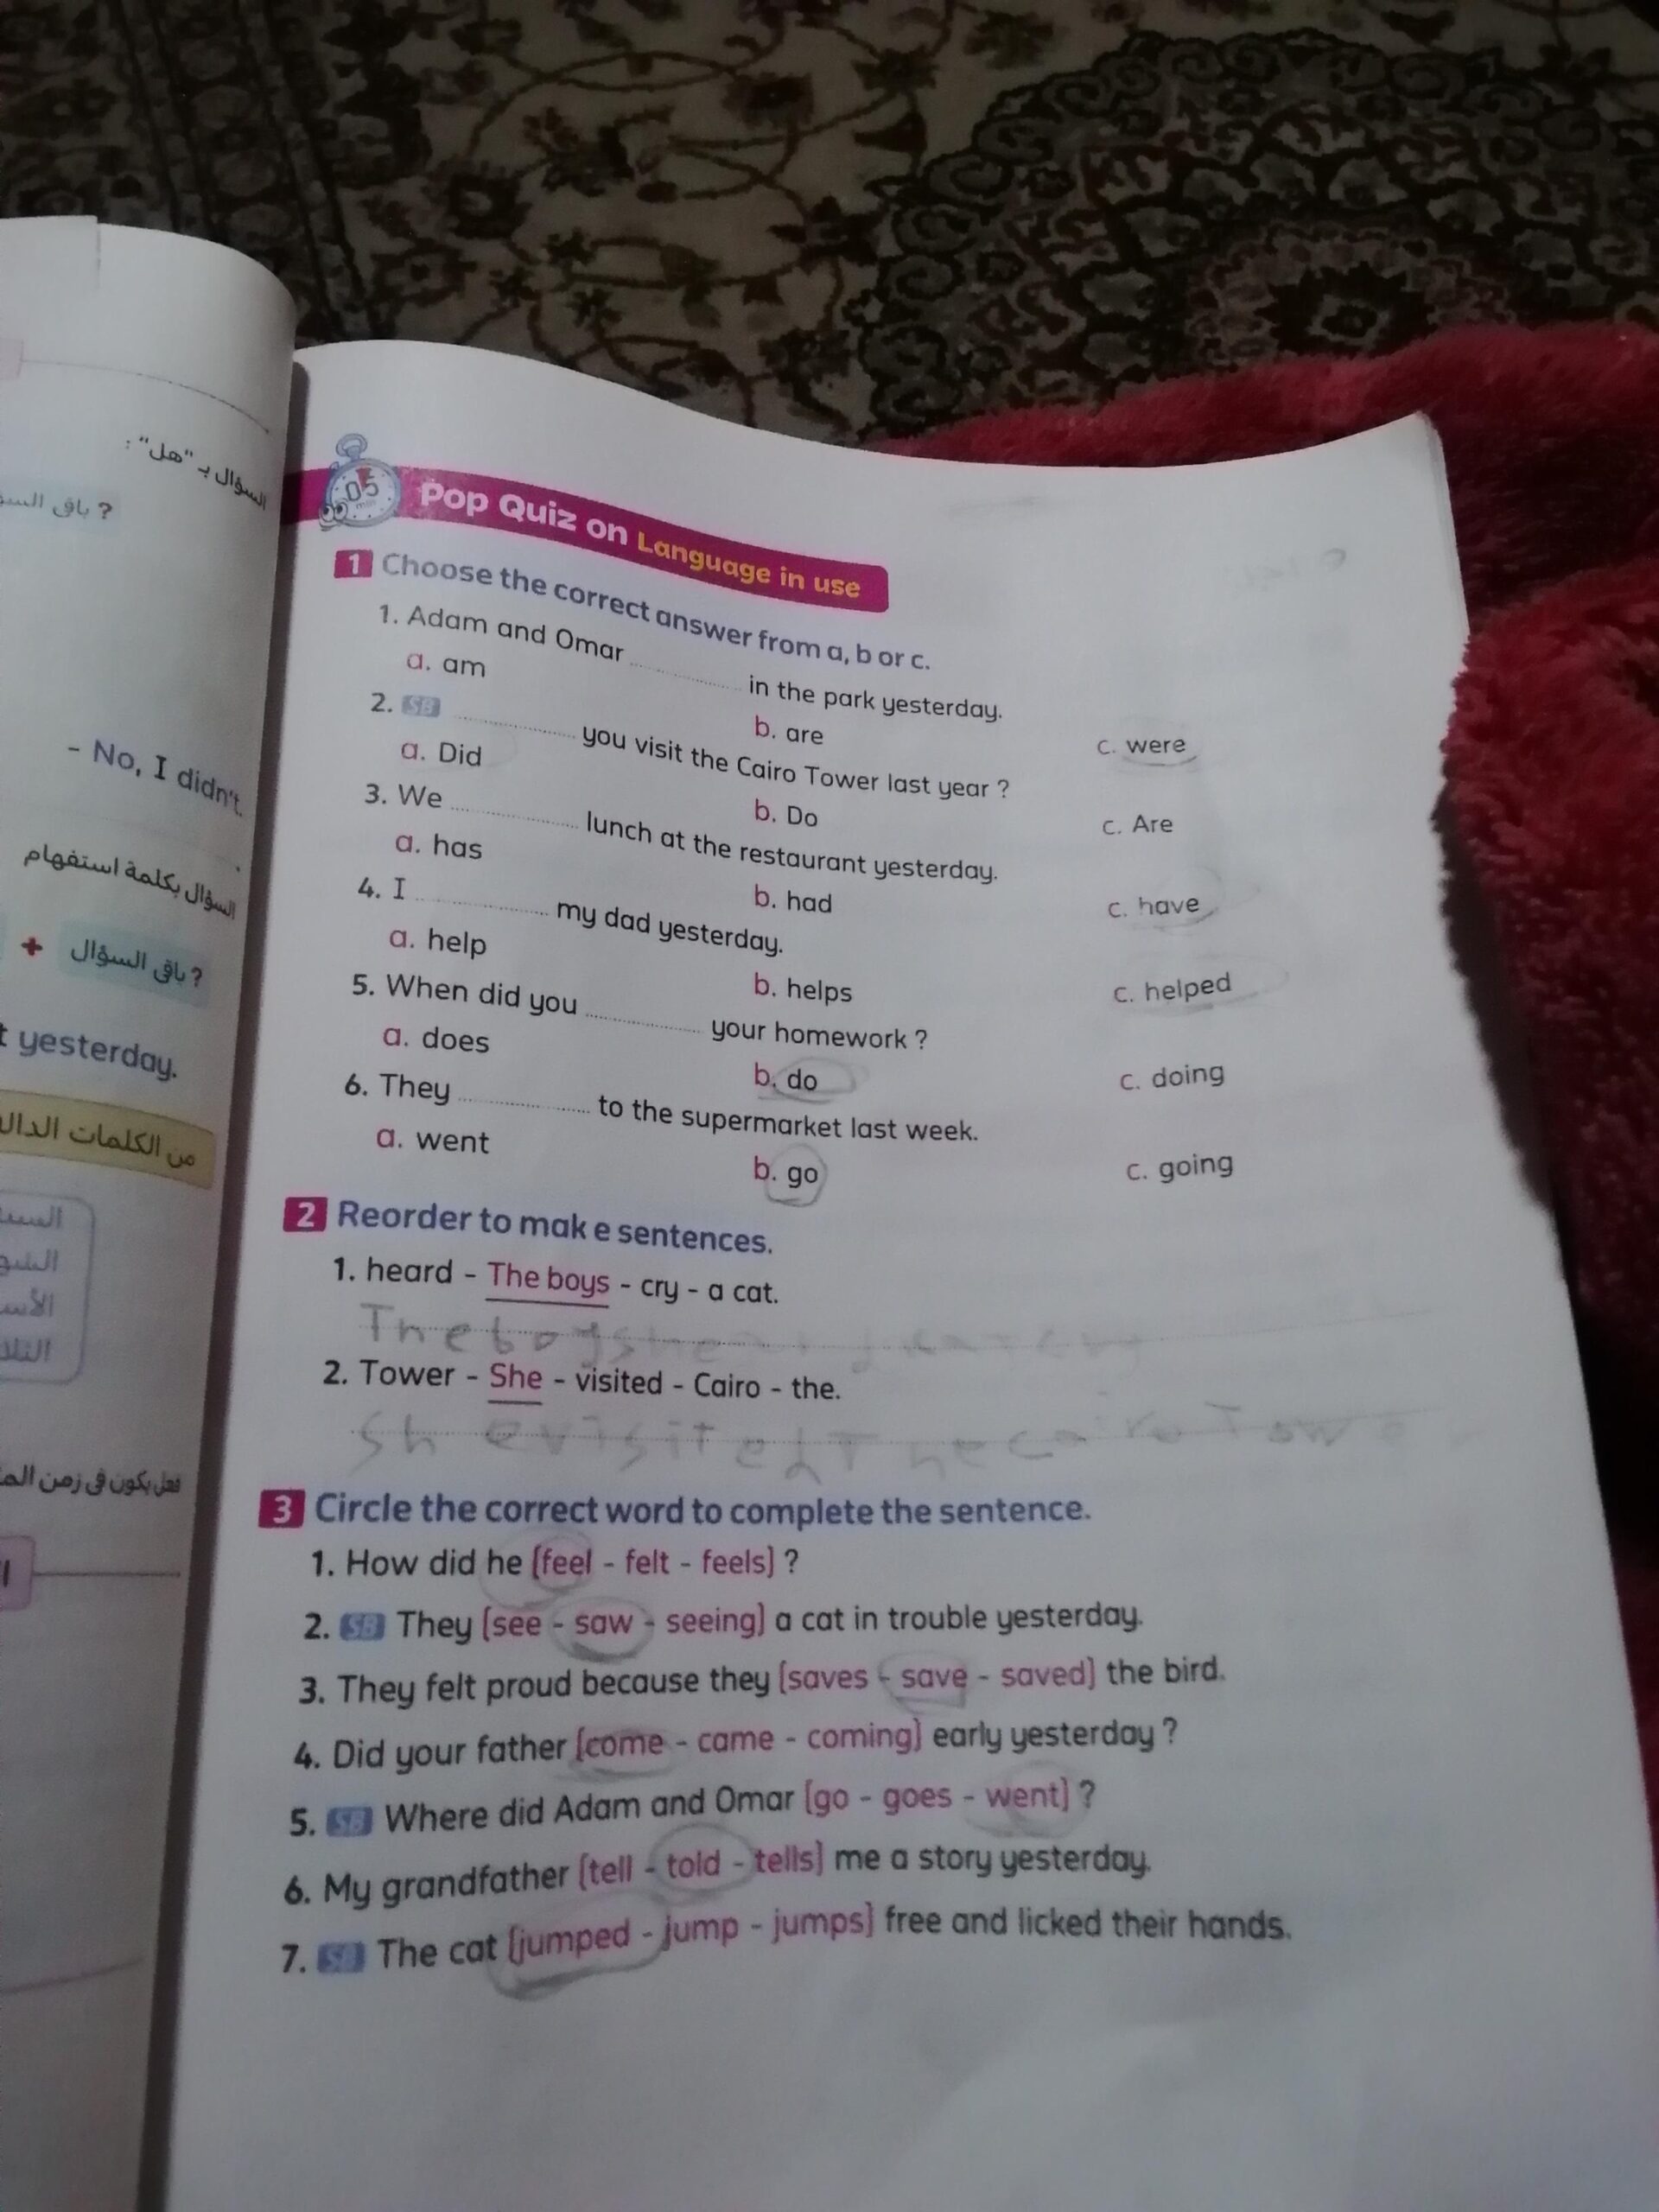 السؤال بـ "هل" :
? باقى
- No, I didn't.
السؤال بكلمة استفهام
+ باقى السؤال ?
yesterday.
من الكلمات
فعل يكون فى زمن
05
min
Pop Quiz on Language in use
1 Choose the correct answer from a, b or c.
1. Adam and Omar ............ in the park yesterday.
a. am b. are c. were
2. SB ............ you visit the Cairo Tower last year ?
a. Did b. Do c. Are
3. We ............ lunch at the restaurant yesterday.
a. has b. had c. have
4. I ............ my dad yesterday.
a. help b. helps c. helped
5. When did you ............ your homework ?
a. does b. do c. doing
6. They ............ to the supermarket last week.
a. went b. go c. going
2 Reorder to mak e sentences.
1. heard - The boys - cry - a cat.
The boys
2. Tower - She - visited - Cairo - the.
She visited The cairo
3 Circle the correct word to complete the sentence.
1. How did he (feel - felt - feels) ?
2. SB They (see - saw - seeing) a cat in trouble yesterday.
3. They felt proud because they (saves - save - saved) the bird.
4. Did your father (come - came - coming) early yesterday ?
5. SB Where did Adam and Omar (go - goes - went) ?
6. My grandfather (tell - told - tells) me a story yesterday.
7. SB The cat (jumped - jump - jumps) free and licked their hands.